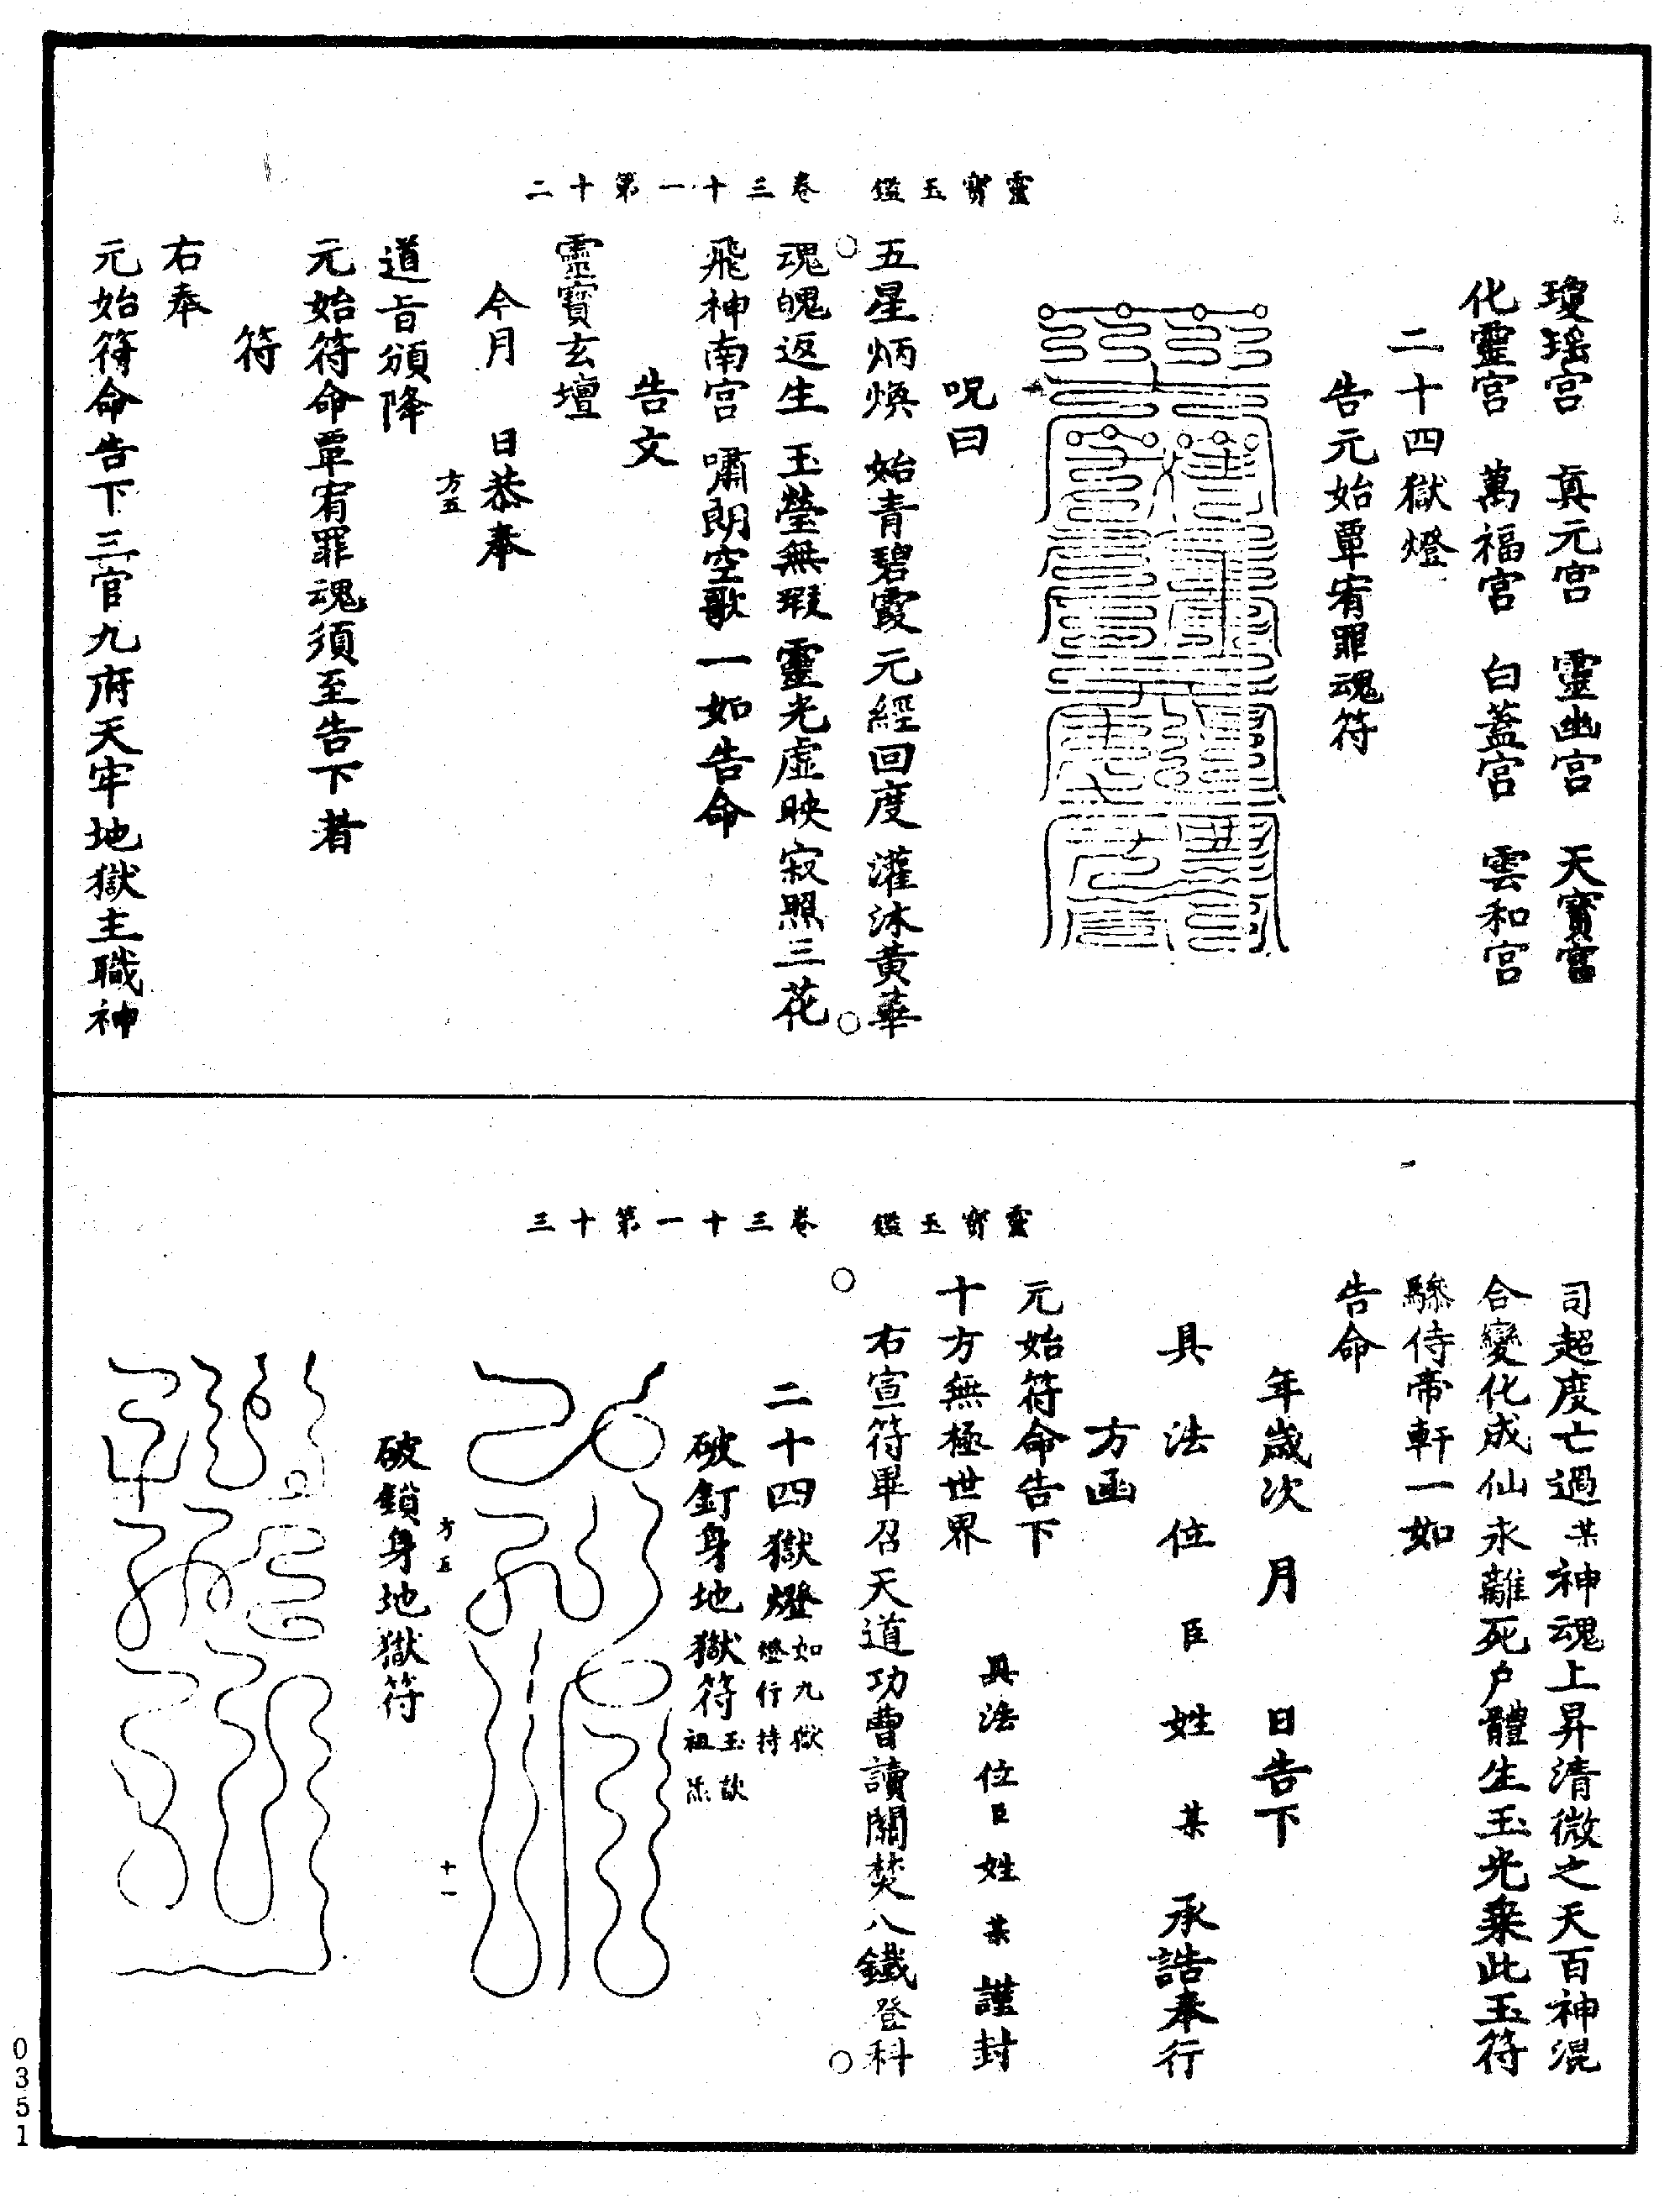 靈寶玉鑑 卷三十一第十二
瓊瑤宮 真元宮 靈幽宮 天寶宮
化靈宮 萬福宮 白蓋宮 雲和宮
二十四獄燈
告元始覃宥罪魂符
呪曰
五星炳煥 始青碧霞 元經回度 灌沐黃華
魂魄返生 玉瑩無瑕 靈光虛映 寂照三花
飛神南宮 嘯朗空歌 一如告命
告文
靈寶玄壇
今月 日恭奉
方五
道旨頒降
元始符命覃宥罪魂須至告下者
符
右奉
元始符命告下三官九府天牢地獄主職神
靈寶玉鑑 卷三十一第十三
司超度亡過某神魂上昇清微之天百神混
合變化成仙永離死戶體生玉光乘此玉符
驂侍帝軒一如
告命
年歲次 月 日告下
具法位臣姓某承誥奉行
方函
元始符命告下
十方無極世界
具法位臣姓某謹封
右宣符畢召天道功曹讀關焚八鐵登科
二十四獄燈如九獄燈行持
破釘身地獄符玉訣祖炁
方五
十一
破鎖身地獄符
0351